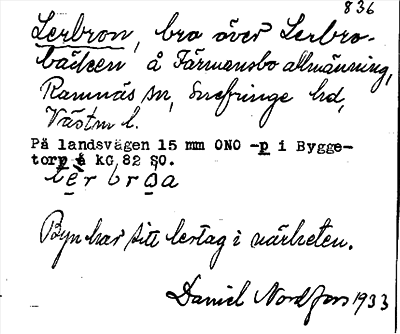 836
Lerbron, bro över Lerbro-
bäcken å Färmansbo allmänning,
Ramnäs sn, Snefringe hd,
Västm l.
På landsvägen 15 mm ONO -p i Bygge-
torp å KG 82 SO.
lèrbrɷa
Byn har sitt lertag i närheten.
Daniel Nordfors 1933